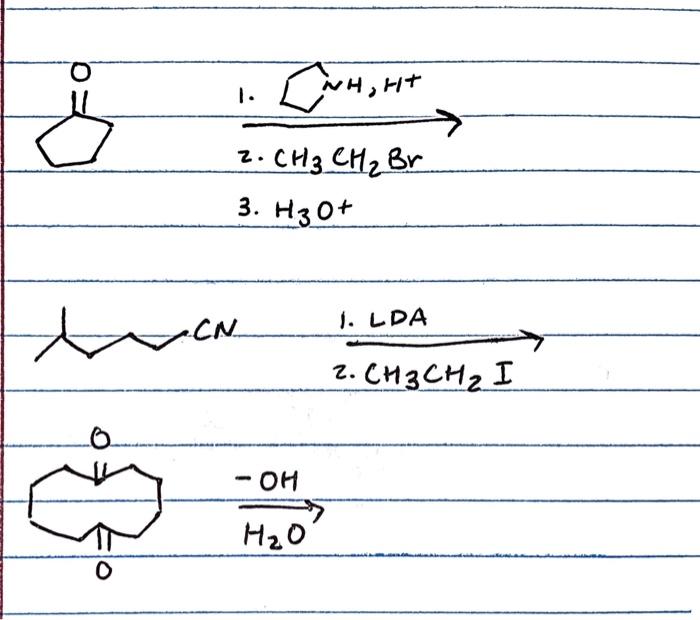 O
1. NH, H+
2. CH3 CH2 Br
3. H3O+
CN
1. LDA
2. CH3CH2 I
O
-OH
H2O
O